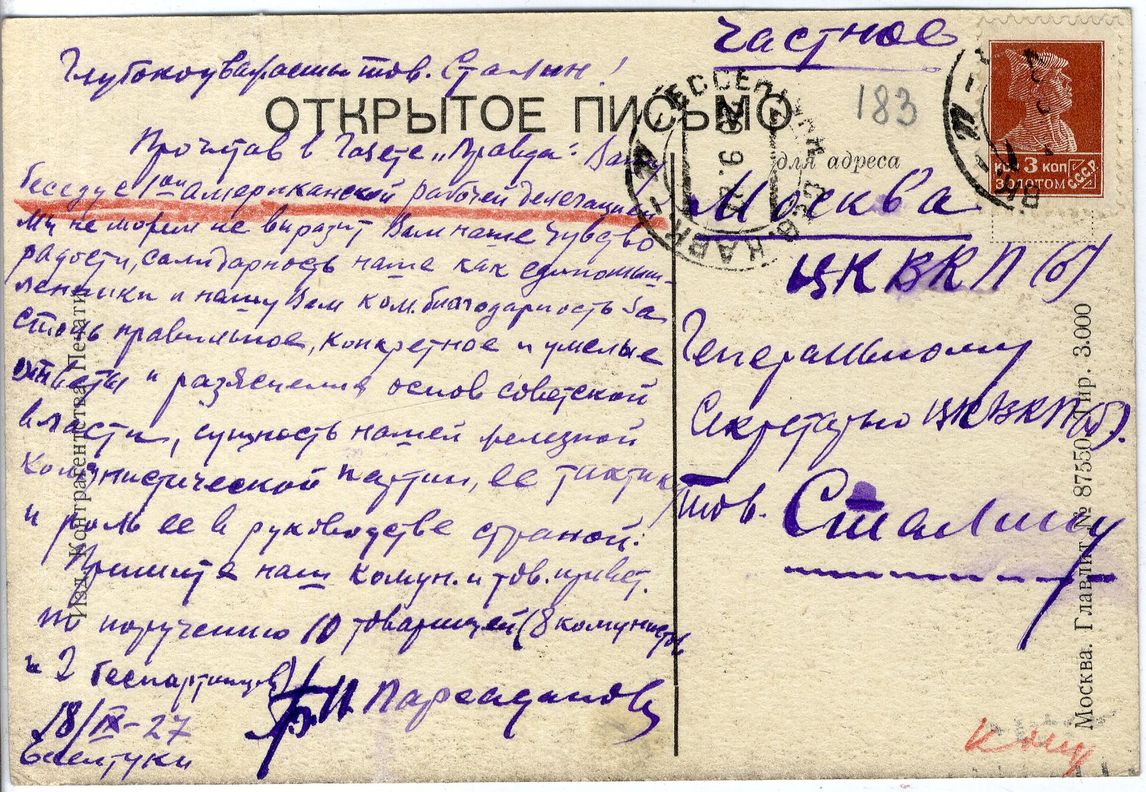 Частное
Глубокоуважаемый тов. Сталин!
ОТКРЫТОЕ ПИСЬМО
183
для адреса
КОП 3 КОП
ЗОЛОТОМ СССР
Прочитав в Газете „Правда“ Вашу
беседу с 1ой американской рабочей делегацией
Мы не можем не виразит Вам наше чувство
радости, салидарность наше как единомыш-
ленники и нашу Вам ком. благодарность за
столь правильное, конкретное и умелые
ответы и разяснения основ советской
власти, сущность нашей железной
комунистической партии, ее тактику
и роль ее в руководстве страной.
Примите наш комун. и тов. привет.
По поручению 10 товарищей (8 комунистов
и 2 беспартийцев)
Н. Парсаданов
18/IX-27
Есентуки
Москва
ЦК ВКП(б)
Генеральному
Секретарю ЦКВКП(б).
тов. Сталину
Изд. Контрагентства Печати
Москва. Главлит № 87550 Тир. 3.000
Кому